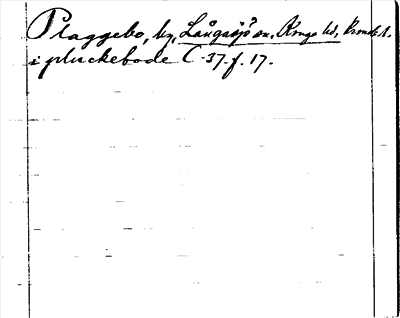 Plaggebo, by, Långasjö sn, Konga hd, Kronob. l.
i pluckebode C-37. f. 17.